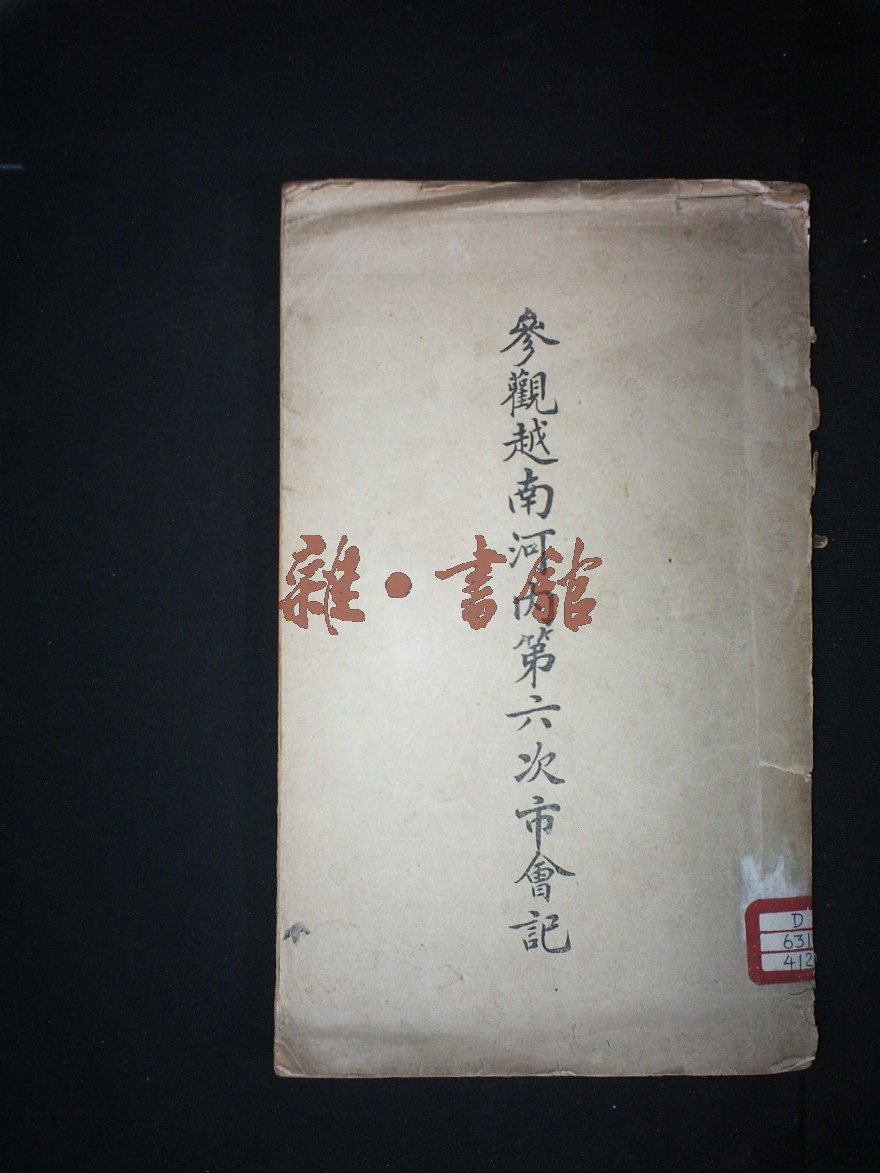 參觀越南河內第六次市會記
雜·書館
D
631
412